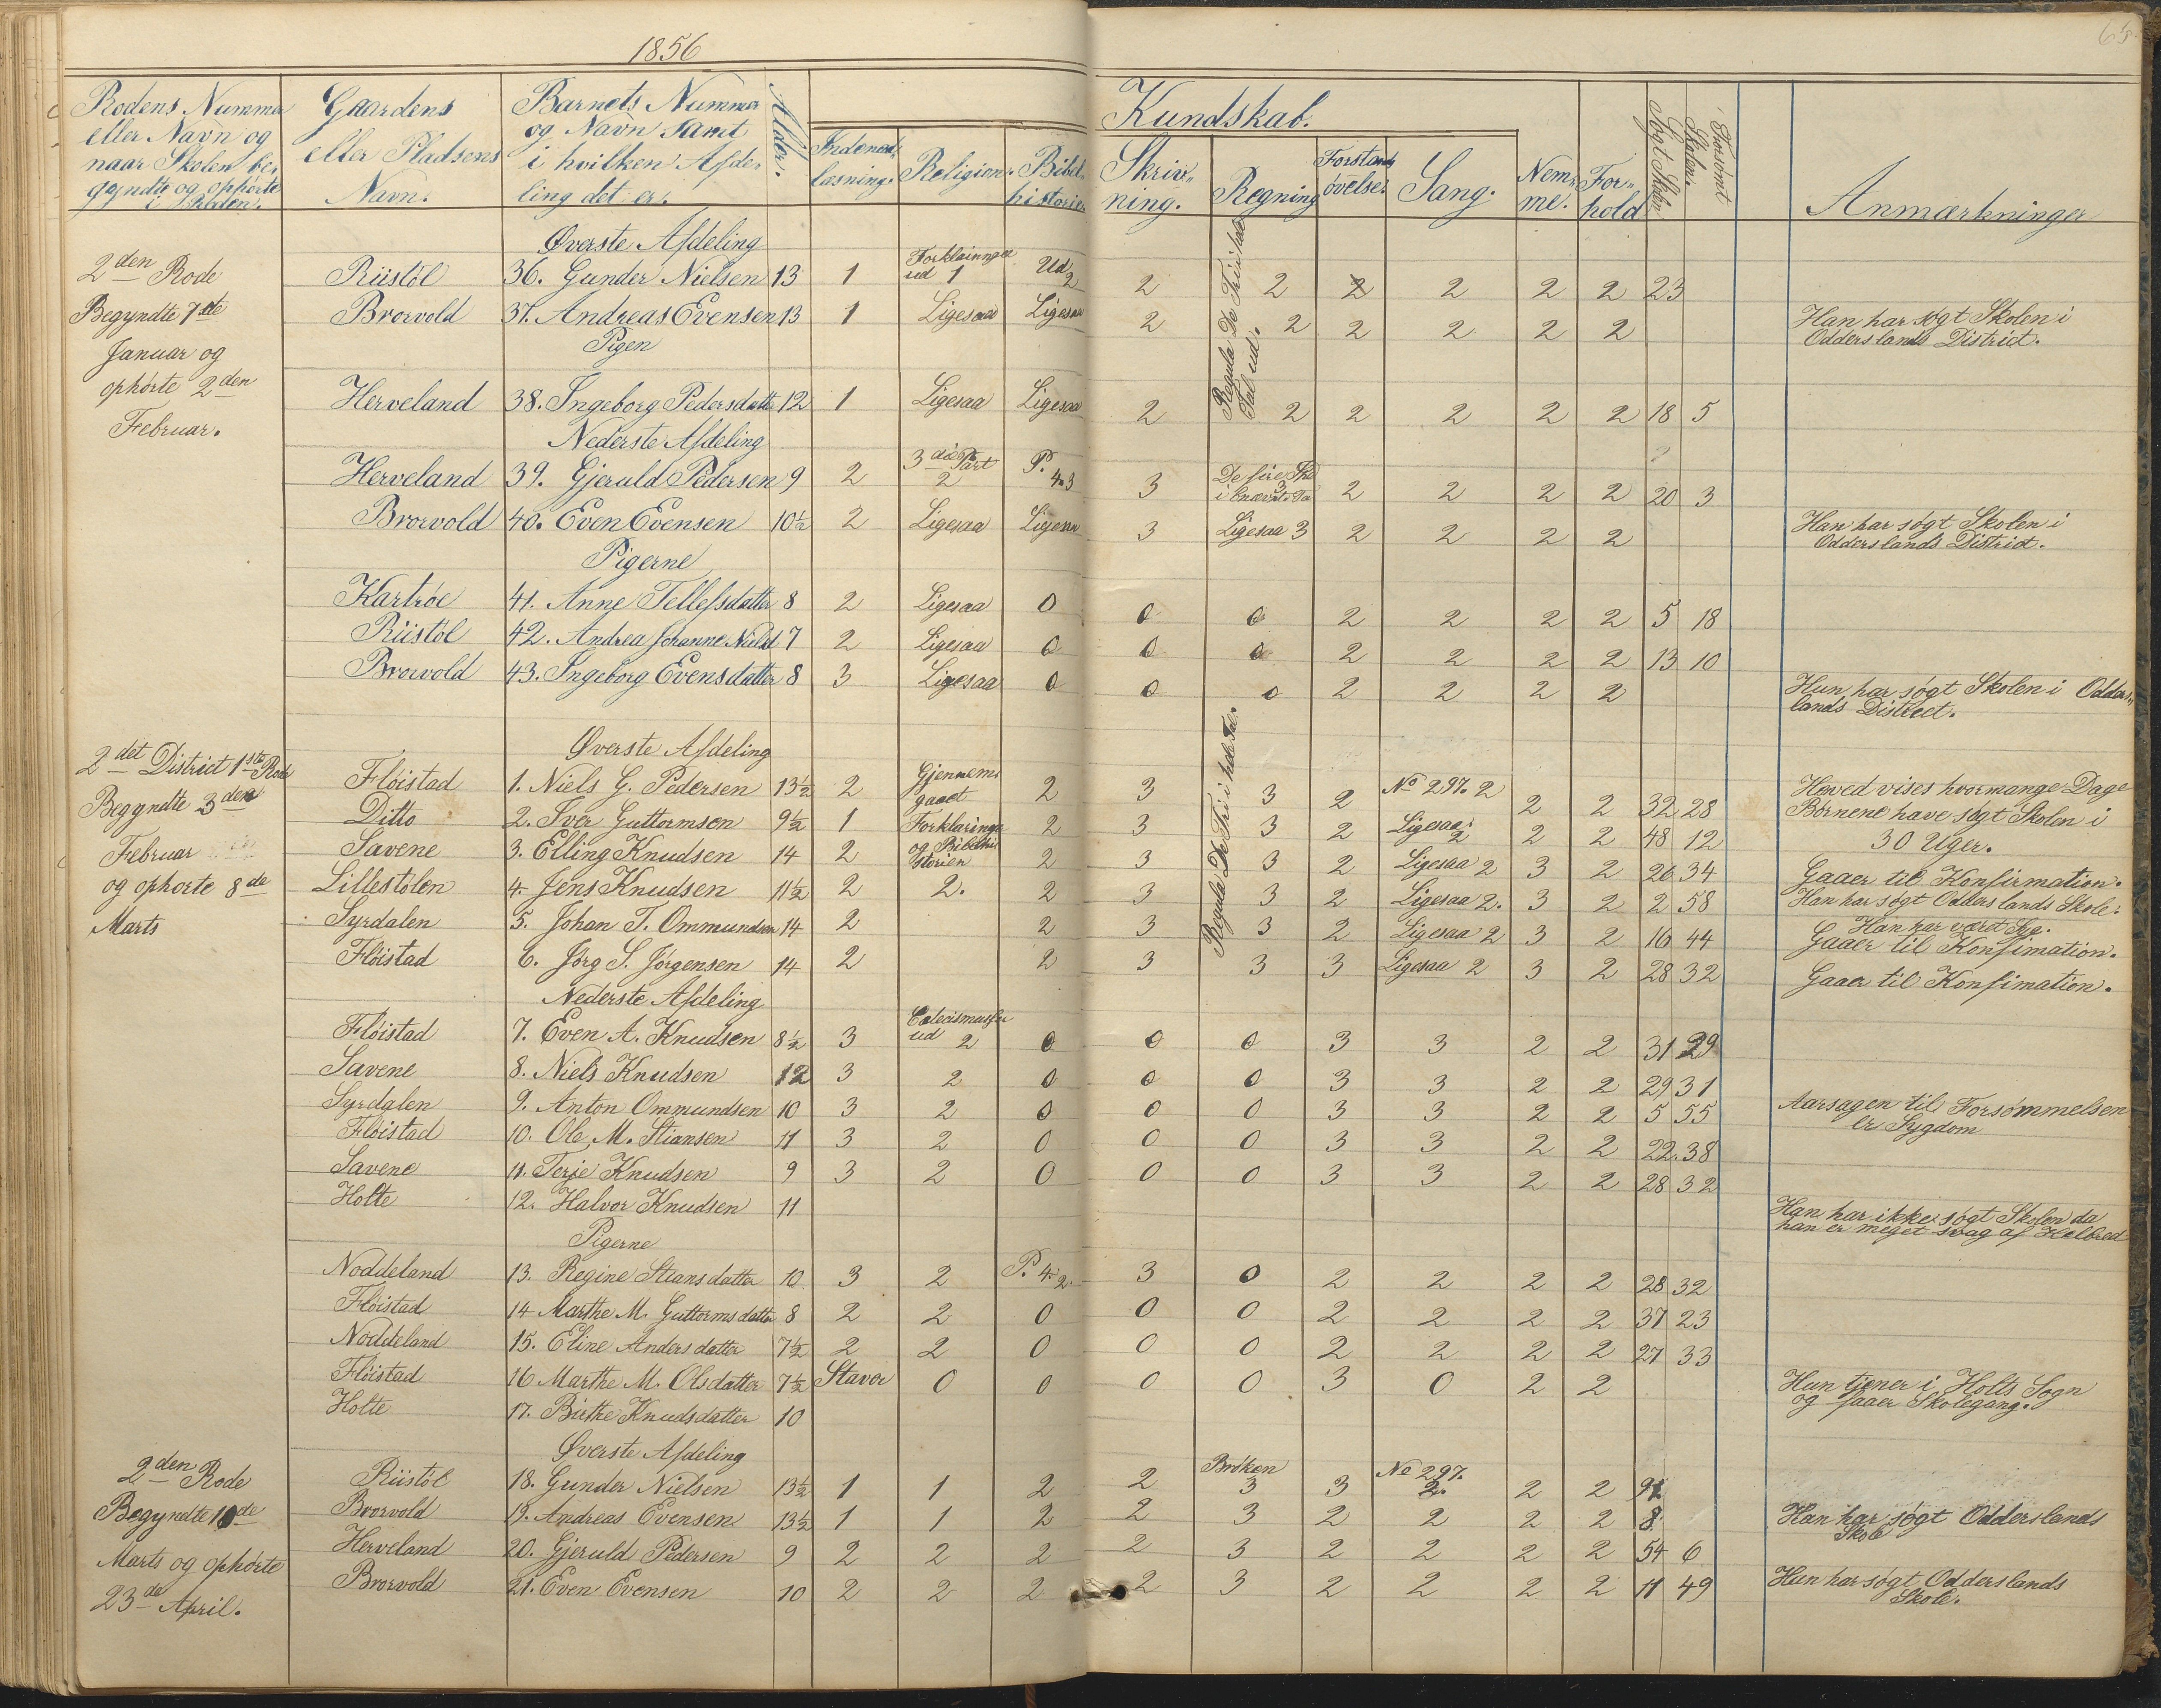 1856
65.
Rodens Nummer eller Navn og naar Skolen begyndte og ophørte i Roden.
Gaardens eller Pladsens Navn.
Barnets Nummer og Navn samt i hvilken Afdeling det er.
Alder.
Kundskab.
Indenadlæsning. Religion. Bibelhistorie. Skrivning. Regning Forstandsøvelse. Sang. Nemme. Forhold
Søgt Skolen. Forsømt Skolen.
Anmærkninger
Øverste Afdeling
2den Rode
Begyndte 7de
Januar og
ophørte 2den
Februar.
Riistöl 36. Gunder Nielsen 13 1 Forklaringen ud 1 Ud 2 2 2 2 2 2 2 23
Regula De Tri i hele Tal ud.
Brorvold 37. Andreas Evensen 13 1 Ligesaa Ligesaa 2 2 2 2 2 2 Han har søgt Skolen i Odderslands District.
Pigen
Herveland 38. Ingeborg Pedersdatter 12 1 Ligesaa Ligesaa 2 2 2 2 2 2 18 5
Nederste Afdeling
Herveland 39. Gjeruld Pedersen 9 2 3die Part 2 P. 4. 3 3 De fire 3 2 2 2 2 20 3
Brorvold 40. Even Evensen 10½ 2 Ligesaa Ligesaa 3 Ligesaa 3 2 2 2 2 Han har søgt Skolen i Odderslands District.
Pigerne
Kartröe 41. Anne Tellefsdatter 8 2 Ligesaa 0 0 0 2 2 2 2 5 18
Riistöl 42. Andrea Johanne Nielsd 7 2 Ligesaa 0 0 0 2 2 2 2 13 10
Brorvold 43. Ingeborg Evensdatter 8 3 Ligesaa 0 0 0 2 2 2 2 Hun har søgt Skolen i Odderslands District.
Øverste Afdeling
2det District 1ste Rode
Begyndte 3den
Februar
og ophørte 8de
Marts
Regula De Tri i hele Tal.
Flöistad 1. Niels G. Pedersen 13½ 2 Gjennemgaaet 2 3 3 2 No 297. 2 2 2 32 28 Herved vises hvormange Dage
Ditto 2. Iver Guttormsen 9½ 1 Forklaringen 2 3 3 2 Ligesaa 2 2 2 48 12 Børnene have søgt Skolen i
Savene 3. Elling Knudsen 14 2 og Bibelhistorien 2 3 3 2 Ligesaa 2 3 2 26 34 30 Uger. Gaaer til Konfirmation.
Lillestölen 4. Jens Knudsen 11½ 2 2. 2 3 3 2 Ligesaa 2. 3 2 2 58 Han har søgt Odderslands Skole.
Syrdalen 5. Johan T. Ommundsen 14 2 2 3 3 2 Ligesaa 2 3 2 16 44 Han har været Syg. Gaaer til Konfimation.
Flöistad 6. Jörg S. Jörgensen 14 2 2 3 3 3 Ligesaa 2 3 2 28 32 Gaaer til Konfimation.
Nederste Afdeling
Flöistad 7. Even A. Knudsen 8½ 3 ud 2 0 0 0 3 3 2 2 31 29
Savene 8. Niels Knudsen 12 3 2 0 0 0 3 3 2 2 29 31
Syrdalen 9. Anton Ommundsen 10 3 2 0 0 0 3 3 2 2 5 55 Aarsagen til Forsømmelsen er Sygdom
Flöistad 10. Ole M. Stiansen 11 3 2 0 0 0 3 3 2 2 22. 38
Savene 11. Terje Knudsen 9 3 2 0 0 0 3 3 2 2 28 32
Holte 12. Halvor Knudsen 11 Han har ikke søgt Skolen da han er meget svag af Helbred
Pigerne
Noddeland 13. Regine Stiansdatter 10 3 2 P. 4. 2. 3 0 2 2 2 2 28 32
Flöistad 14 Marthe M. Guttormsdatter 8 2 2 0 0 0 2 2 2 2 37 23
Noddeland 15. Eline Andersdatter 7½ 2 2 0 0 0 2 2 2 2 27 33
Flöistad 16 Marthe M. Olsdatter 7½ Staver 0 0 0 0 3 0 2 2 Hun tjener i Holts Sogn
Holte 17. Birthe Knudsdatter 10 og faaer Skolegang.
Øverste Afdeling
2den Rode
Begyndte 10de
Marts og ophørte
23de April.
Riistöl 18. Gunder Nielsen 13½ 1 1 2 2 Brøken 3 3 No 297. 2. 2 2 91
Brorvold 19. Andreas Evensen 13½ 1 1 2 2 3 2 2 2 2 8 Han har søgt Odderslands Skole
Herveland 20. Gjeruld Pedersen 9 2 2 2 2 3 2 2 2 2 54 6
Brorvold 21. Even Evensen 10 2 2 2 2 3 2 2 2 2 11 49 Hun har søgt Odderslands Skole.